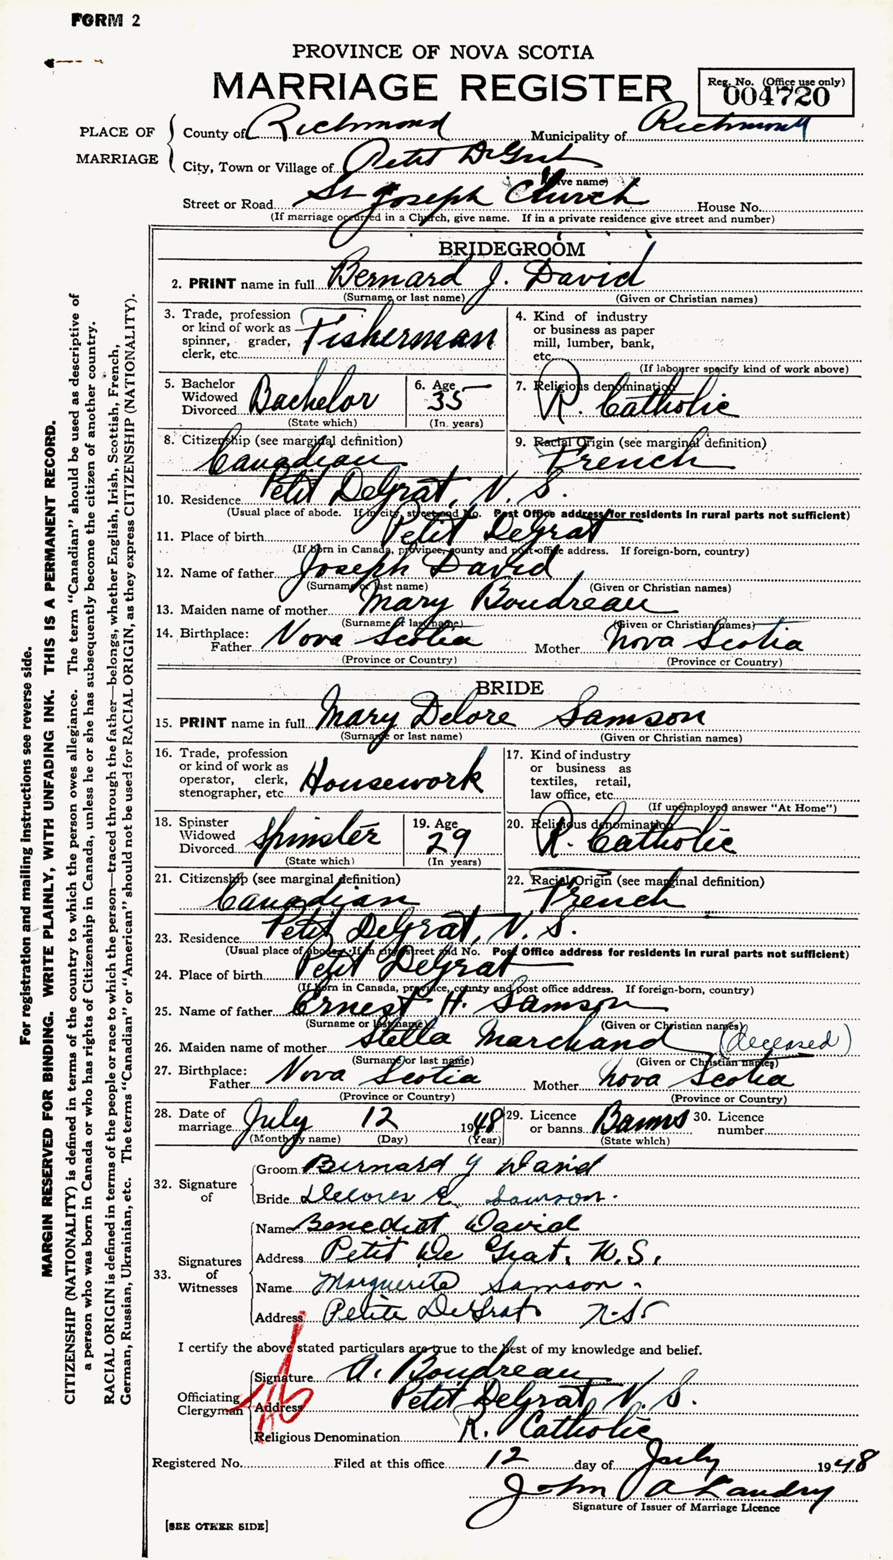 FORM 2
PROVINCE OF NOVA SCOTIA
MARRIAGE REGISTER
Reg. No. (Office use only)
004720
PLACE OF MARRIAGE
County of Richmond Municipality of Richmond
City, Town or Village of Petit DeGrat
(Give name)
Street or Road St Joseph Church House No.
(If marriage occurred in a Church, give name. If in a private residence give street and number)
BRIDEGROOM
2. PRINT name in full Bernard J. David
(Surname or last name) (Given or Christian names)
3. Trade, profession or kind of work as spinner, grader, clerk, etc. Fisherman
4. Kind of industry or business as paper mill, lumber, bank, etc.
(If labourer specify kind of work above)
5. Bachelor Widowed Divorced Bachelor
(State which)
6. Age 35
(In years)
7. Religious denomination R. Catholic
8. Citizenship (see marginal definition) Canadian
9. Racial Origin (see marginal definition) French
10. Residence Petit DeGrat, N. S.
(Usual place of abode. If in city, street and No. Post Office address for residents in rural parts not sufficient)
11. Place of birth Petit DeGrat
(If born in Canada, province, county and post-office address. If foreign-born, country)
12. Name of father Joseph David
(Surname or last name) (Given or Christian names)
13. Maiden name of mother Mary Boudreau
(Surname or last name) (Given or Christian names)
14. Birthplace: Father Nova Scotia Mother Nova Scotia
(Province or Country) (Province or Country)
BRIDE
15. PRINT name in full Mary Delore Samson
(Surname or last name) (Given or Christian names)
16. Trade, profession or kind of work as operator, clerk, stenographer, etc. Housework
17. Kind of industry or business as textiles, retail, law office, etc.
(If unemployed answer "At Home")
18. Spinster Widowed Divorced Spinster
(State which)
19. Age 29
(In years)
20. Religious denomination R. Catholic
21. Citizenship (see marginal definition) Canadian
22. Racial Origin (see marginal definition) French
23. Residence Petit DeGrat, N. S.
(Usual place of abode. If in city street and No. Post Office address for residents in rural parts not sufficient)
24. Place of birth Petit DeGrat
(If born in Canada, province, county and post office address. If foreign-born, country)
25. Name of father Ernest H. Samson
(Surname or last name) (Given or Christian names)
26. Maiden name of mother Stella Marchand (deceased)
(Surname or last name) (Given or Christian names)
27. Birthplace: Father Nova Scotia Mother Nova Scotia
(Province or Country) (Province or Country)
28. Date of marriage July 12 1948
(Month by name) (Day) (Year)
29. Licence or banns Banns
(State which)
30. Licence number
32. Signature of
Groom Bernard J David
Bride Delores E. Samson
33. Signatures of Witnesses
Name Benedict David
Address Petit De Grat, N.S.
Name Marguerite Samson
Address Petite DeGrat N.S.
I certify the above stated particulars are true to the best of my knowledge and belief.
Officiating Clergyman
Signature A. Boudreau
Address Petit DeGrat, N. S.
Religious Denomination R. Catholic
Registered No. Filed at this office 12 day of July 1948
John A Landry
Signature of Issuer of Marriage Licence
[SEE OTHER SIDE]
For registration and mailing instructions see reverse side.
MARGIN RESERVED FOR BINDING. WRITE PLAINLY, WITH UNFADING INK. THIS IS A PERMANENT RECORD.
CITIZENSHIP (NATIONALITY) is defined in terms of the country to which the person owes allegiance. The term "Canadian" should be used as descriptive of
a person who was born in Canada or who has rights of Citizenship in Canada, unless he or she has subsequently become the citizen of another country.
RACIAL ORIGIN is defined in terms of the people or race to which the person—traced through the father—belongs, whether English, Irish, Scottish, French,
German, Russian, Ukrainian, etc. The terms "Canadian" or "American" should not be used for RACIAL ORIGIN, as they express CITIZENSHIP (NATIONALITY).